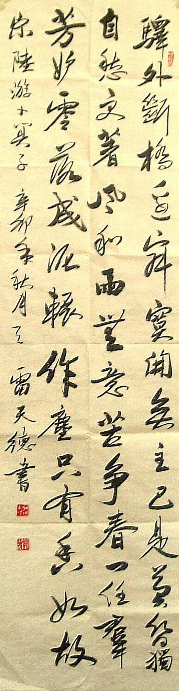 驛外斷橋邊寂寞開無主已是黃昏獨
自愁更著風和雨無意苦爭春一任羣
芳妒零落成泥輾作塵只有香如故
宋陸游卜算子 辛卯年秋月 雷天德書